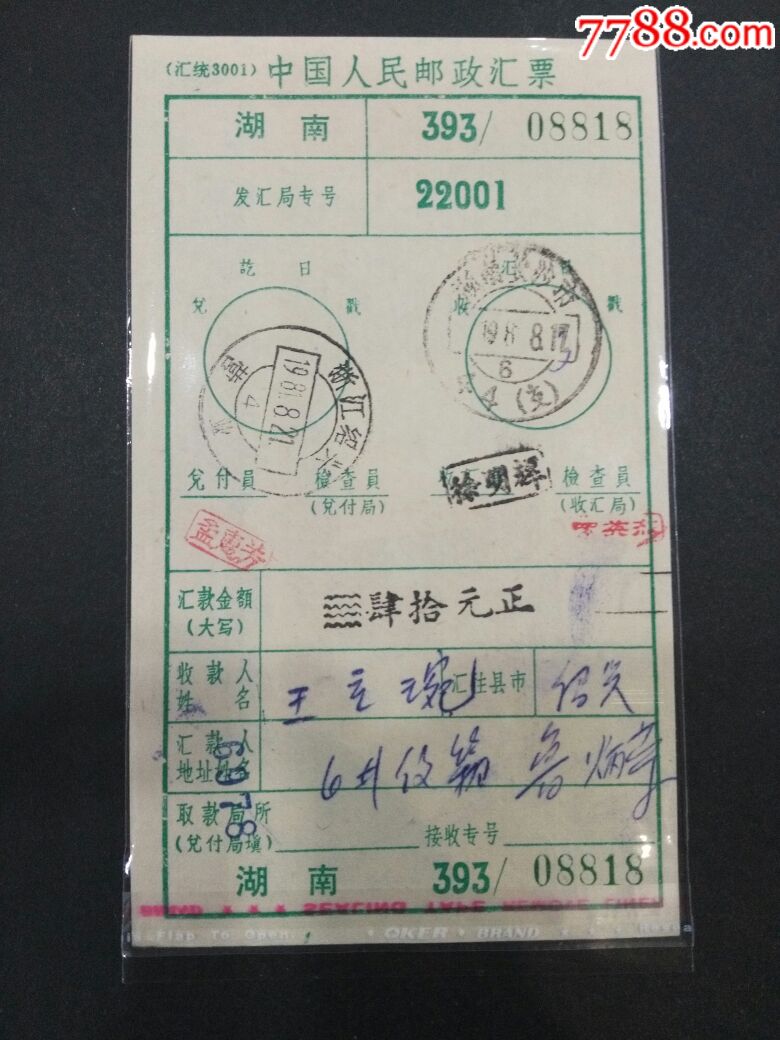 7788.com
(汇统3001) 中国人民邮政汇票
湖南 393/ 08818
发汇局专号 22001
兑 讫 日 戳
收 汇 戳
浙江绍兴
1981.8.21
4
市
1981.8.17
6
4(支)
兑付員 檢查員
(兑付局)
檢查員
(收汇局)
徐明辉
汇款金額
(大写)
肆拾元正
收款人
姓名
王立琬
汇往县市
绍兴
汇款人
地址姓名
6078
取款局所
(兑付局填)
接收专号
湖南 393/ 08818
BRAND * * * SEALING TAPE
Flap To Open. * OKER * BRAND * * *